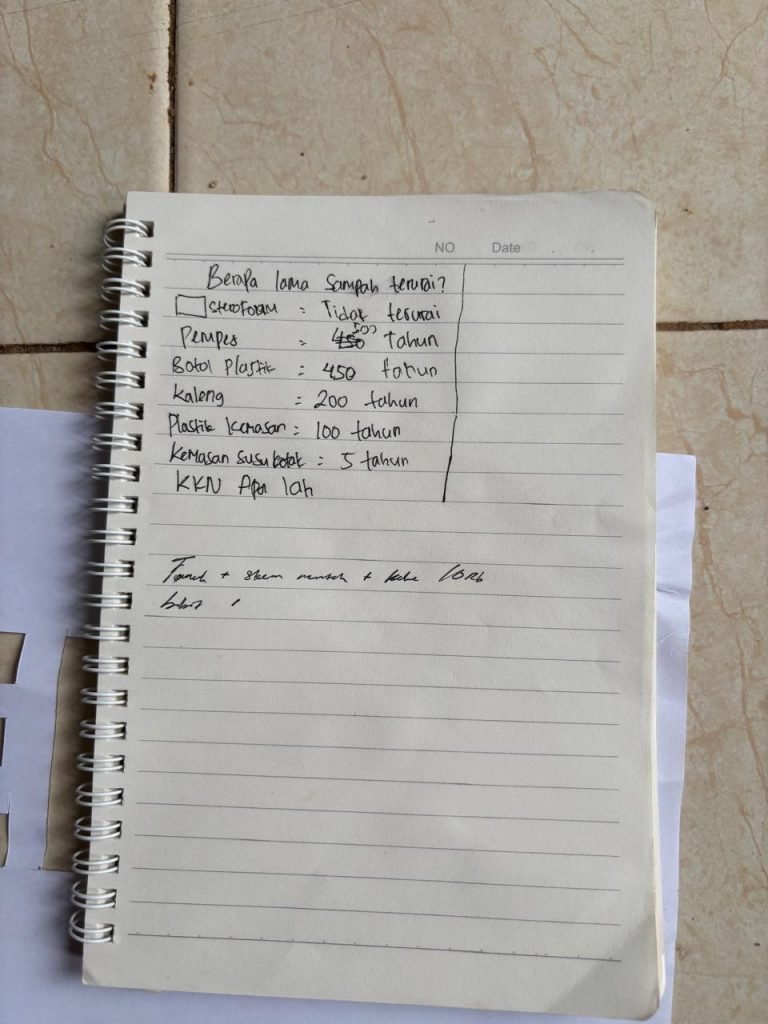 NO Date
Berapa lama sampah terurai?
steroform : Tidak terurai
Pempes = 500 tahun
Botol Plastik : 450 tahun
Kaleng = 200 tahun
Plastik Kemasan = 100 tahun
Kemasan susu kotak = 5 tahun
KKN Apa lah
+ +